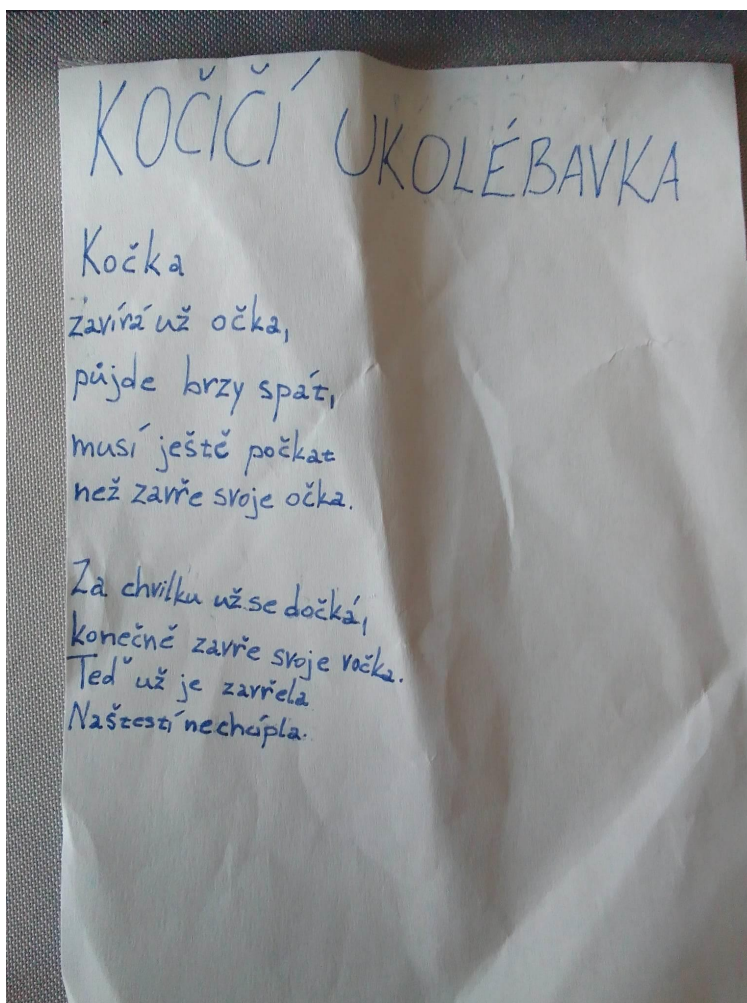 KOČIČÍ UKOLÉBAVKA
Kočka
zavírá už očka,
půjde brzy spát,
musí ještě počkat
než zavře svoje očka.
Za chvilku už se dočká,
konečně zavře svoje vočka.
Teď už je zavřela
Naštestí nechcípla.